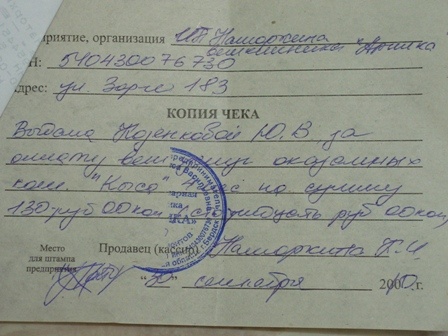 приятие, организация ИП Наторкина
Н: 540430076730
дрес: ул. Зорге 183
КОПИЯ ЧЕКА
Выдана Козенковой Ю.В за
оплату вет. услуг оказанных
кош. "Кыса" на сумму
130 руб 00 коп, сто тридцать руб 00 коп,
Место
для штампа
предприятия
Продавец (кассир) Наторкина
"30" сентября 2010 г.